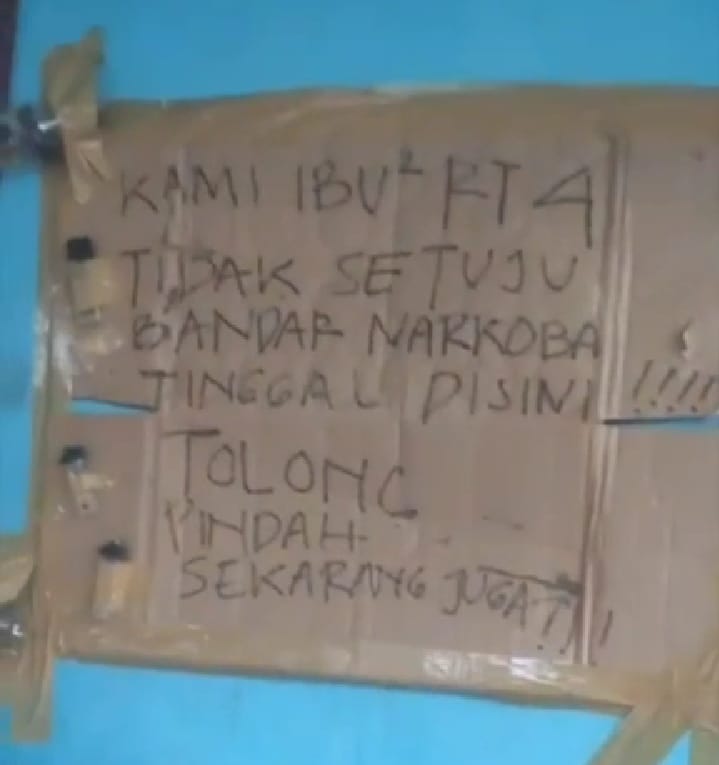 KAMI IBU² RT 4
TIDAK SETUJU
BANDAR NARKOBA
TINGGAL DISINI !!!!
TOLONG
PINDAH
SEKARANG JUGA !!!